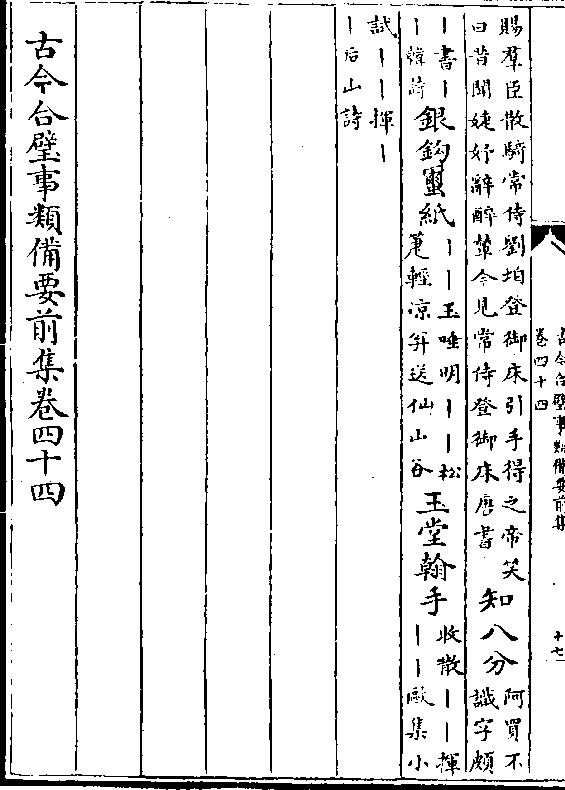 古今合璧事類備要前集
卷四十四
十七
賜羣臣散騎常侍劉洎登御床引手得之帝笑
曰昔聞婕妤辭醉輦今見常侍登御床唐書
知八分
阿買不
識字頗
丨書丨
丨韓詩
銀鈎蠒紙
丨丨玉唾明丨丨松
箑輕凉幷送仙山谷
玉堂翰手
收散丨丨揮
丨丨歐集小
試丨丨揮丨
丨后山詩
古今合璧事類備要前集卷四十四